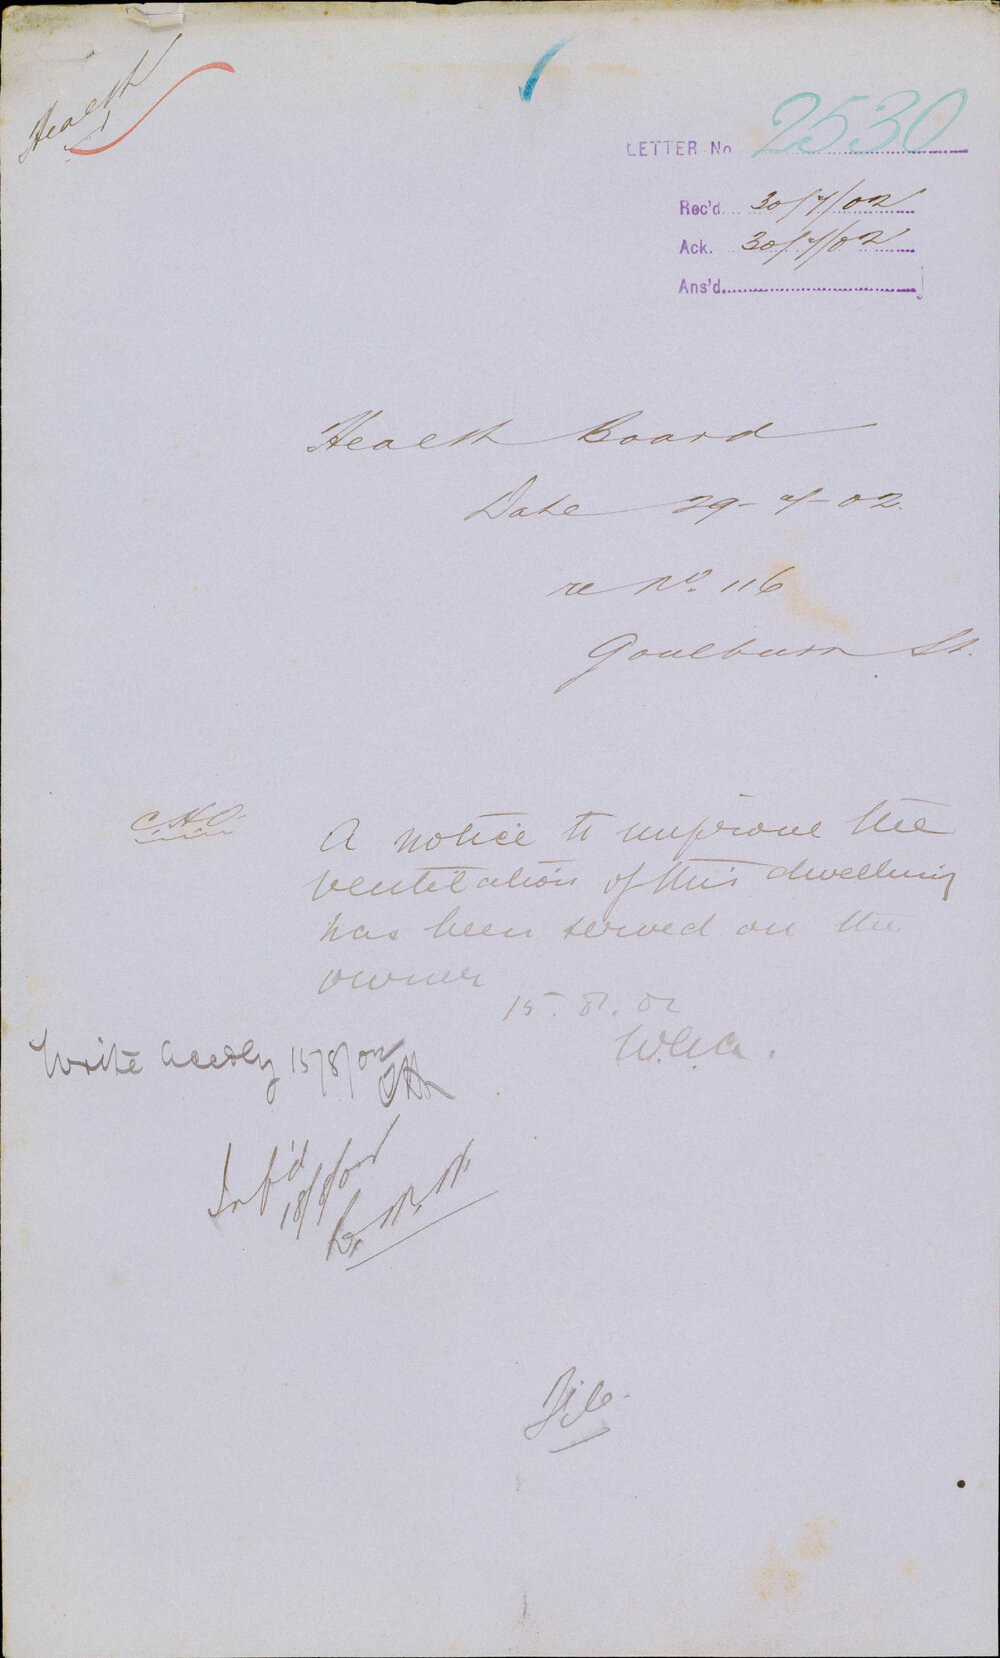 Health
LETTER No 2530
Rec'd 30/7/02
Ack. 30/7/02
Ans'd
Health Board
Date 29-7-02.
re No. 116
Goulburn St.
C.H.O.
A notice to improve the
ventilation of this dwelling
has been served on the
owner
15.8.02
Write accdly 15/8/02
Inf'd
18/8/02
File